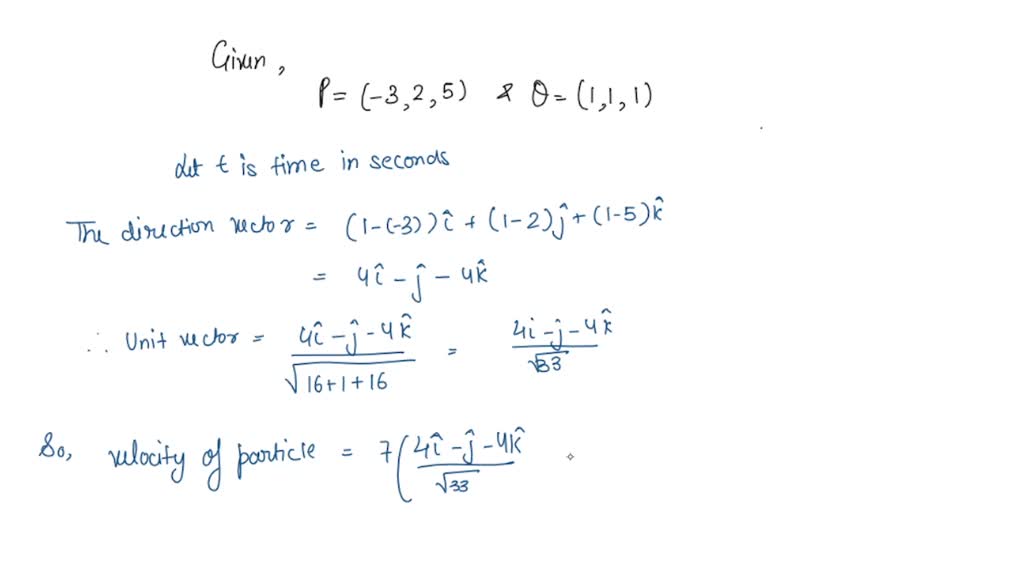 Given,
P = (-3, 2, 5) & Q = (1, 1, 1)
Let t is time in seconds
The direction vector = (1-(-3))î + (1-2)ĵ + (1-5)k̂
= 4î - ĵ - 4k̂
∴ Unit vector = (4î - ĵ - 4k̂)/√(16+1+16) = (4i - j - 4k̂)/√33
So, velocity of particle = 7( (4î - ĵ - 4k̂)/√33